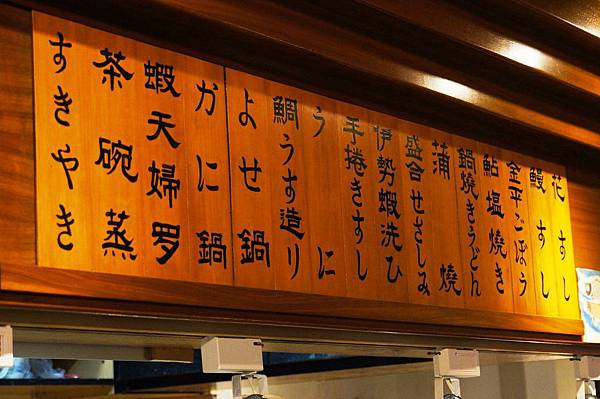 花すし
鰻すし
金平ごぼう
鮎塩焼き
鍋焼きうどん
蒲焼
盛合せさしみ
伊勢蝦洗ひ
手捲きすし
うに
鯛うす造り
よせ鍋
かに鍋
蝦天婦罗
茶碗蒸
すきやき